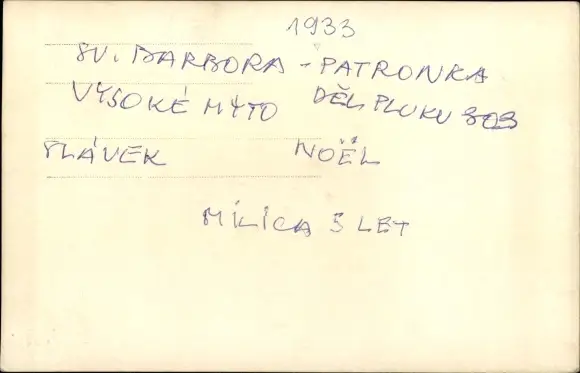 1933
SV. BARBORA - PATRONKA
VYSOKÉ MÝTO DĚL. PLUKU 303
PLÁVEK NOËL
MILICA 5 LET